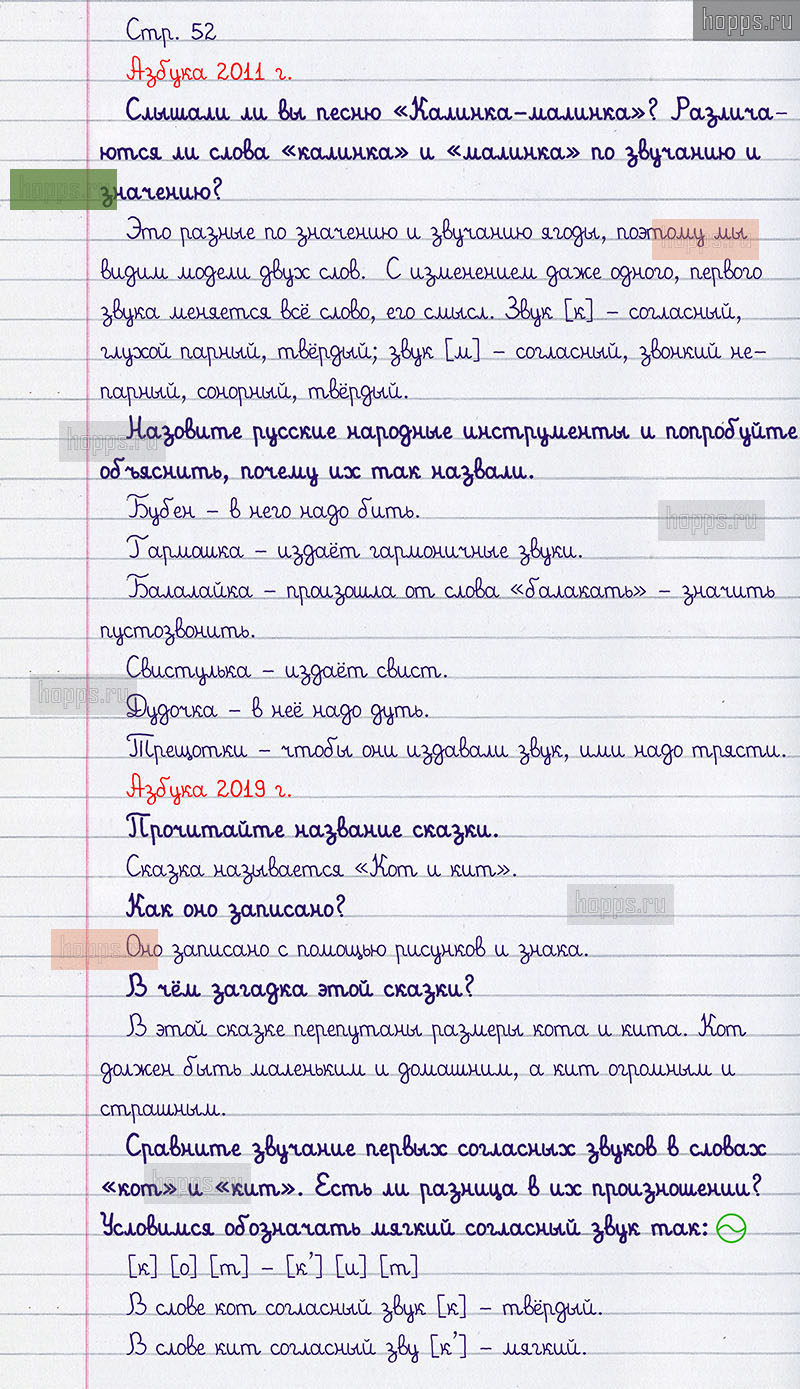 hopps.ru
Стр. 52
Азбука 2011 г.
Слышали ли вы песню «Калинка-малинка»? Различа-
ются ли слова «калинка» и «малинка» по звучанию и
hopps.ru
значению?
Это разные по значению и звучанию ягоды, поэтому мы
hopps.ru
видим модели двух слов. С изменением даже одного, первого
звука меняется всё слово, его смысл. Звук [к] – согласный,
глухой парный, твёрдый; звук [м] – согласный, звонкий не-
парный, сонорный, твёрдый.
hopps.ru
Назовите русские народные инструменты и попробуйте
объяснить, почему их так назвали.
Бубен – в него надо бить.
hopps.ru
Гармошка – издаёт гармоничные звуки.
Балалайка – произошла от слова «балакать» – значить
пустозвонить.
Свистулька – издаёт свист.
hopps.ru
Дудочка – в неё надо дуть.
Трещотки – чтобы они издавали звук, ими надо трясти.
Азбука 2019 г.
Прочитайте название сказки.
Сказка называется «Кот и кит».
Как оно записано?
hopps.ru
hopps.ru
Оно записано с помощью рисунков и знака.
В чём загадка этой сказки?
В этой сказке перепутаны размеры кота и кита. Кот
должен быть маленьким и домашним, а кит огромным и
страшным.
Сравните звучание первых согласных звуков в словах
hopps.ru
«кот» и «кит». Есть ли разница в их произношении?
Условимся обозначать мягкий согласный звук так:
[к] [о] [т] – [к’] [и] [т]
В слове кот согласный звук [к] – твёрдый.
В слове кит согласный зву [к’] – мягкий.